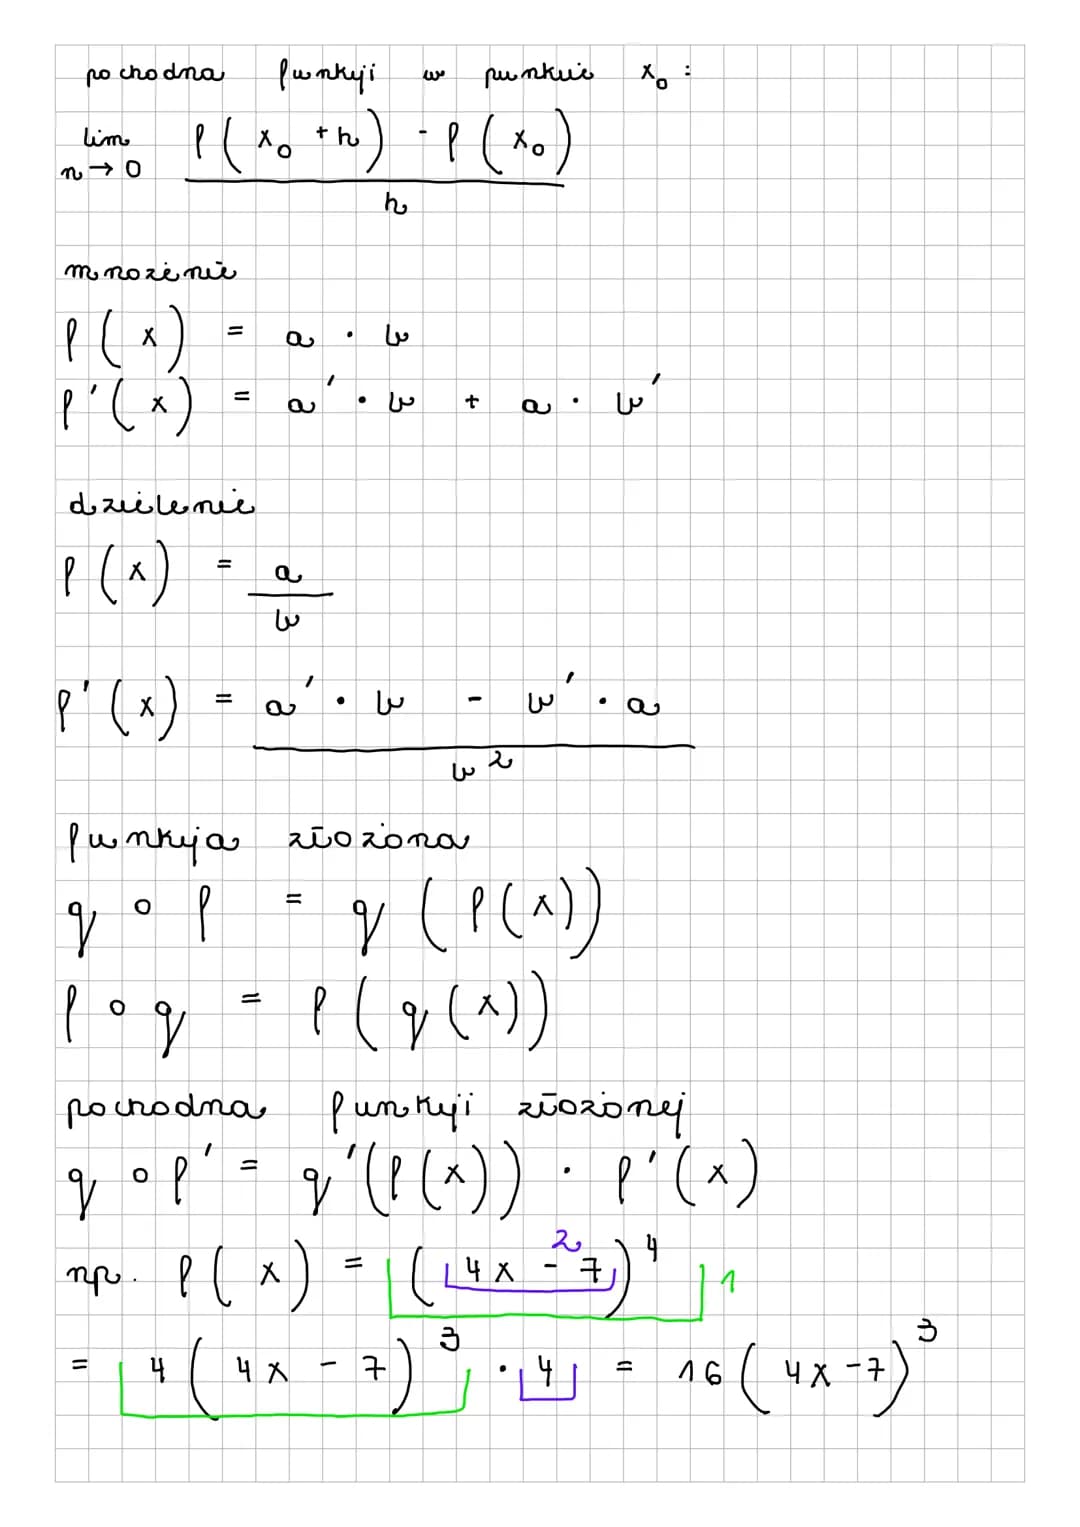 pochodna funkcji w punkcie x₀ :
lim f(x₀ + h) - f(x₀)
n → 0
h
mnożenie
f(x) = a · b
f'(x) = a' · b + a · b'
dzielenie
f(x) = a
b
f'(x) = a' · b - b' · a
b²
funkcja złożona
g ∘ f = g(f(x))
f ∘ g = f(g(x))
pochodna funkcji złożonej
g ∘ f' = g'(f(x)) · f'(x)
2
np. f(x) = (4x - 7)⁴ 1
= 4(4x - 7)³ · 4 = 16(4x - 7)³